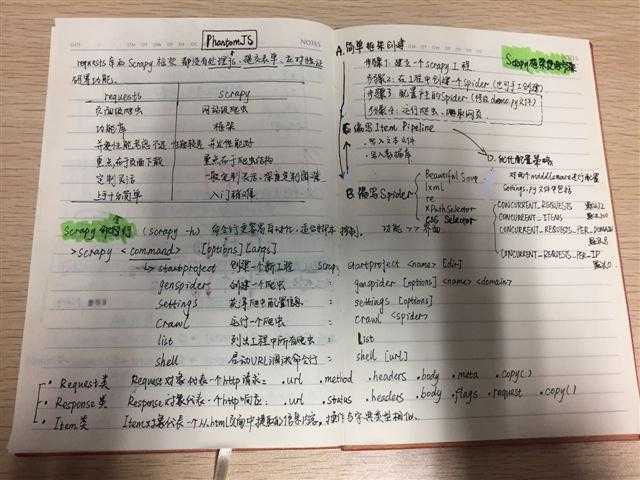 PhantomJS
requests库和Scrapy框架都没有处理js、提交表单、应对验证码等功能。
requests scrapy
页面级爬虫 网站级爬虫
功能库 框架
并发性考虑不足 性能较差 并发性能好
重点在于页面下载 重点在于爬虫结构
定制灵活 一般定制灵活,深度定制困难
上手十分简单 入门稍难
Scrapy命令行 (scrapy -h) 命令行更容易自动化,适合脚本控制。 功能 >> 界面
>scrapy <command> [options] [args]
startproject 创建一个新工程 scrapy startproject <name> [dir]
genspider 创建一个爬虫 : genspider [options] <name> <domain>
settings 获得爬虫配置信息 : settings [options]
crawl 运行一个爬虫 : crawl <spider>
list 列出工程中所有爬虫 : list
shell 启动URL调试命令行 : shell [url]
· Request类 Request对象代表一个http请求: .url .method .headers .body .meta .copy()
· Response类 Response对象代表一个http响应: .url .status .headers .body .flags .request .copy()
· Item类 Item对象代表一个从html页面中提取的信息内容,操作与字典类型相似。
A. 简单框架创建
步骤1: 建立一个Scrapy工程
步骤2: 在工程中创建一个Spider(也可手工创建)
步骤3: 配置产生的Spider(修改demo.py文件)
步骤4: 运行爬虫,爬取网页
C. 编写Item Pipeline
· 写入文本文件
· 写入数据库
B. 编写Spider
Beautiful Soup
lxml
re
XPath Selector
CSS Selector
D. 优化配置策略
对两个middleware进行配置
settings.py文件中包括
CONCURRENT_REQUESTS 默认32
CONCURRENT_ITEMS 默认100
CONCURRENT_REQUESTS_PER_DOMAIN
默认8
CONCURRENT_REQUESTS_PER_IP
默认0